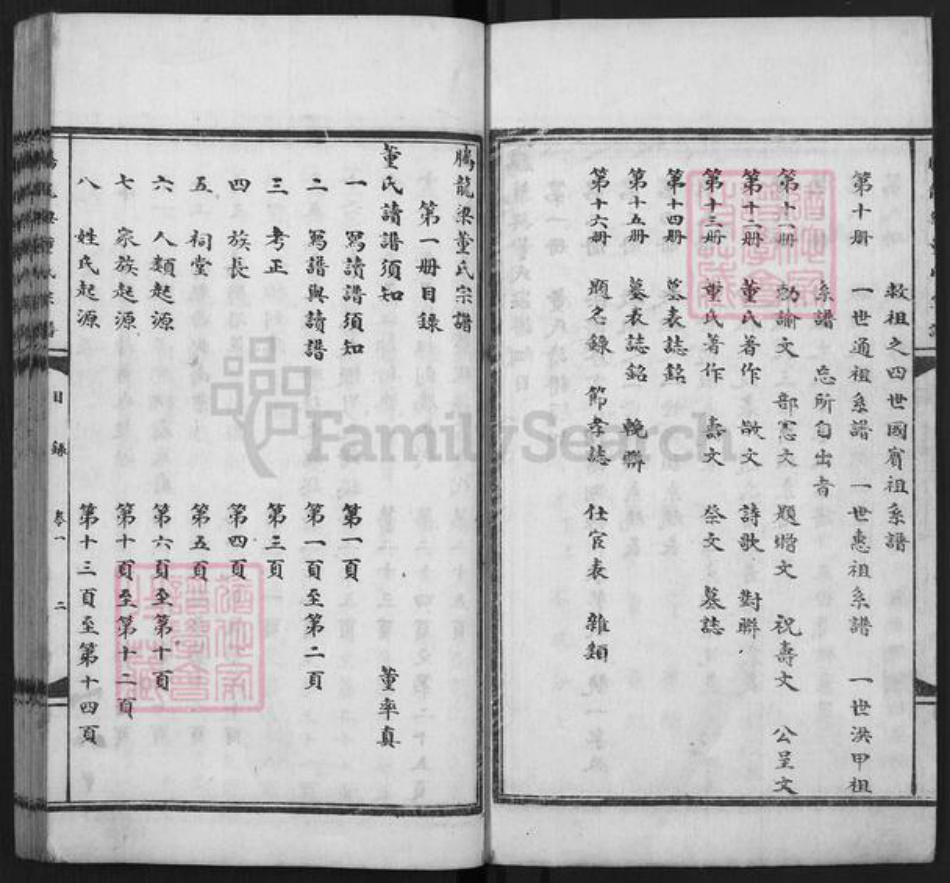 敖祖之四世國賓祖系譜
第十册 一世通祖系譜 一世惠祖系譜 一世洪甲祖
系譜 忘所自出者
第十一册 勅諭文 部憲文 題增文 祝壽文 公呈文
第十二册 董氏著作 散文 詩歌 對聯
第十三册 董氏著作 壽文 祭文 墓誌
第十四册 墓表誌銘
第十五册 墓表誌銘 輓聯
第十六册 題名錄 節孝誌 仕宦表 雜類
騰龍梁董氏宗譜
第一册目録
董氏讀譜須知 董率真
一 寫讀譜須知 第一頁
二 寫譜與讀譜 第一頁至第二頁
三 考正 第三頁
四 族長 第四頁
五 祠堂 第五頁
六 人類起源 第六頁至第十頁
七 家族起源 第十頁至第十二頁
八 姓氏起源 第十三頁至第十四頁
目録 卷一 二
FamilySearch